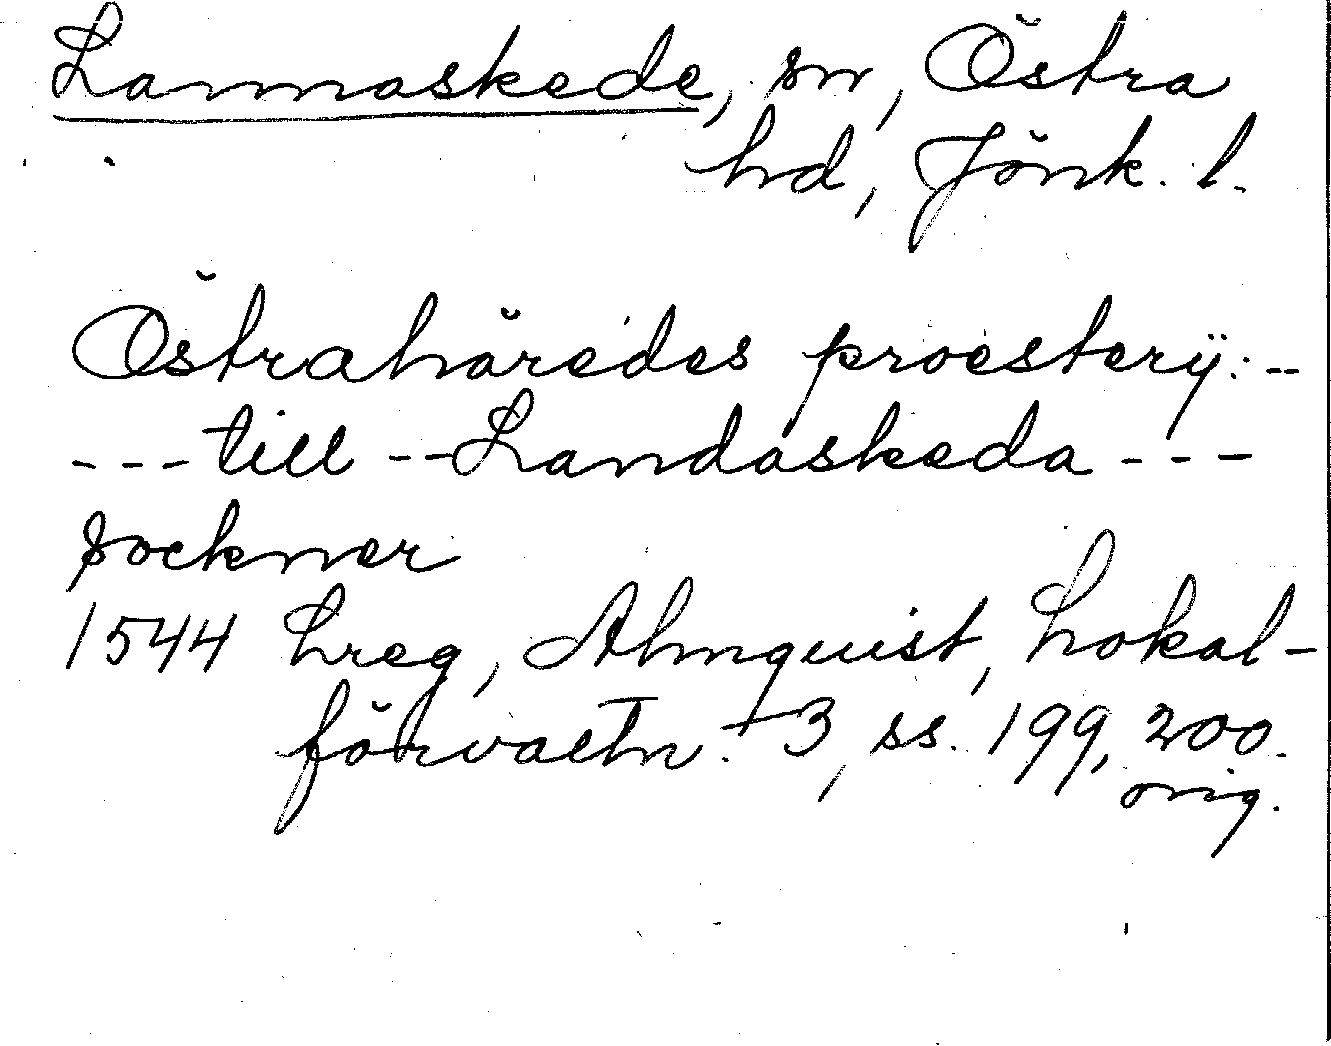 Lannaskede, sn, Östra
hd, Jönk. l.
Östrahäredes proesterÿ: --
--- till -- Landaskeda ---
sockner
1544 Lreg, Almquist, Lokal-
förvaltn. 3, ss. 199, 200.
orig.